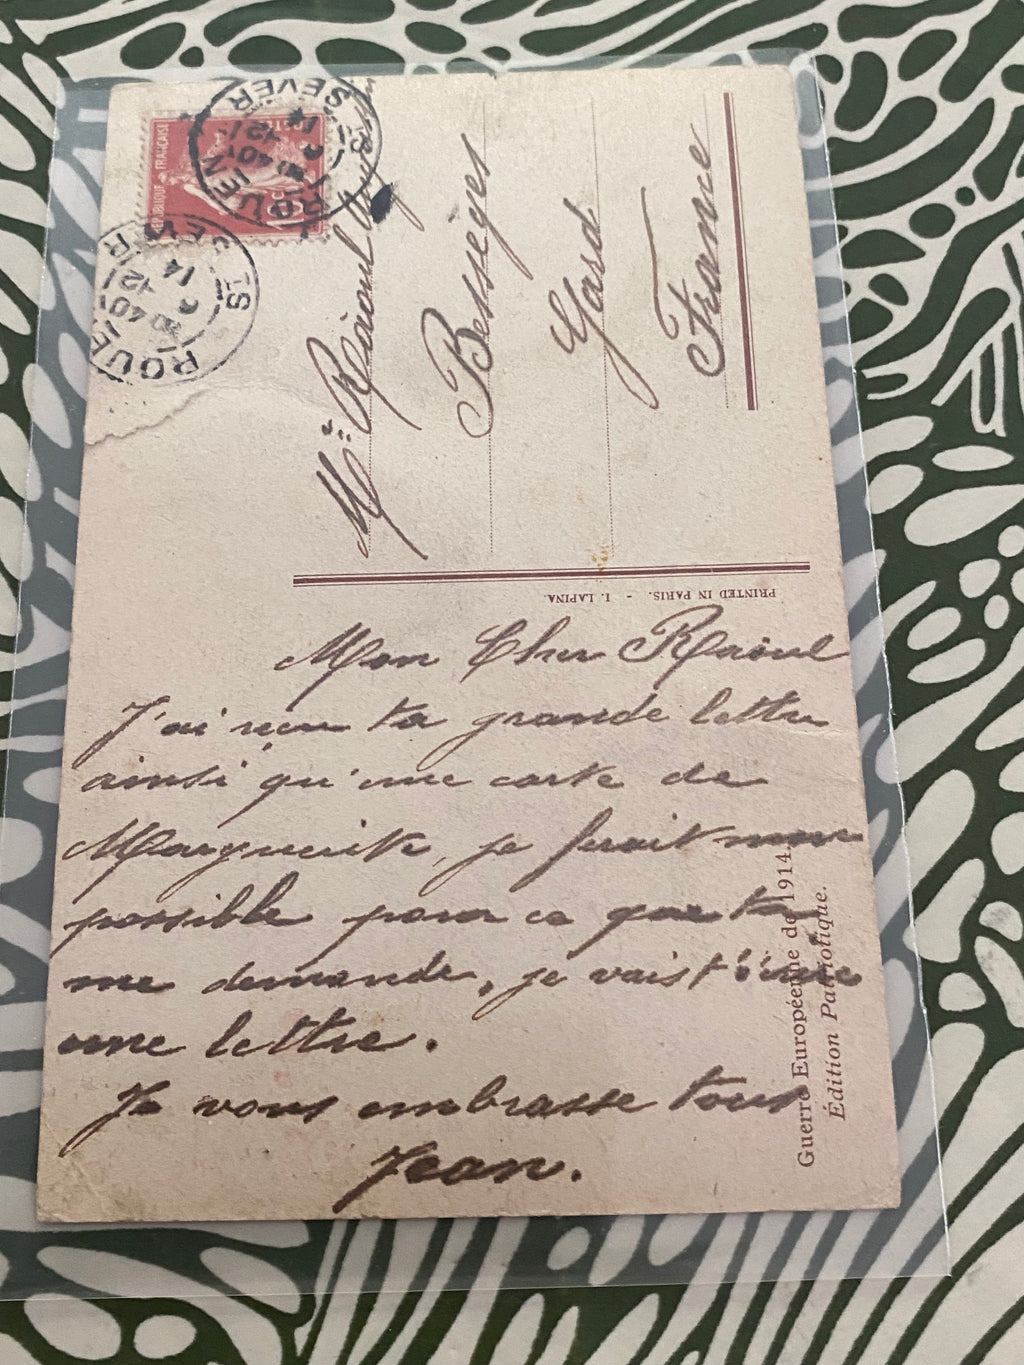 RÉPUBLIQUE FRANÇAISE
ROUEN ST SEVER
20 40
12
14
ROUEN ST SEVER
20 40
12
14
Mr Raioul
Bessèges
Gard
France
PRINTED IN PARIS. - I. LAPINA.
Mon Cher Raioul
J'ai recu ta grande lettre
ainsi qu'une carte de
Marguerite, je ferait mon
possible pour ca que tu
me demande, je vais t'
une lettre.
Je vous embrasse tous
Jean.
Guerre Européenne de 1914.
Édition Patriotique.